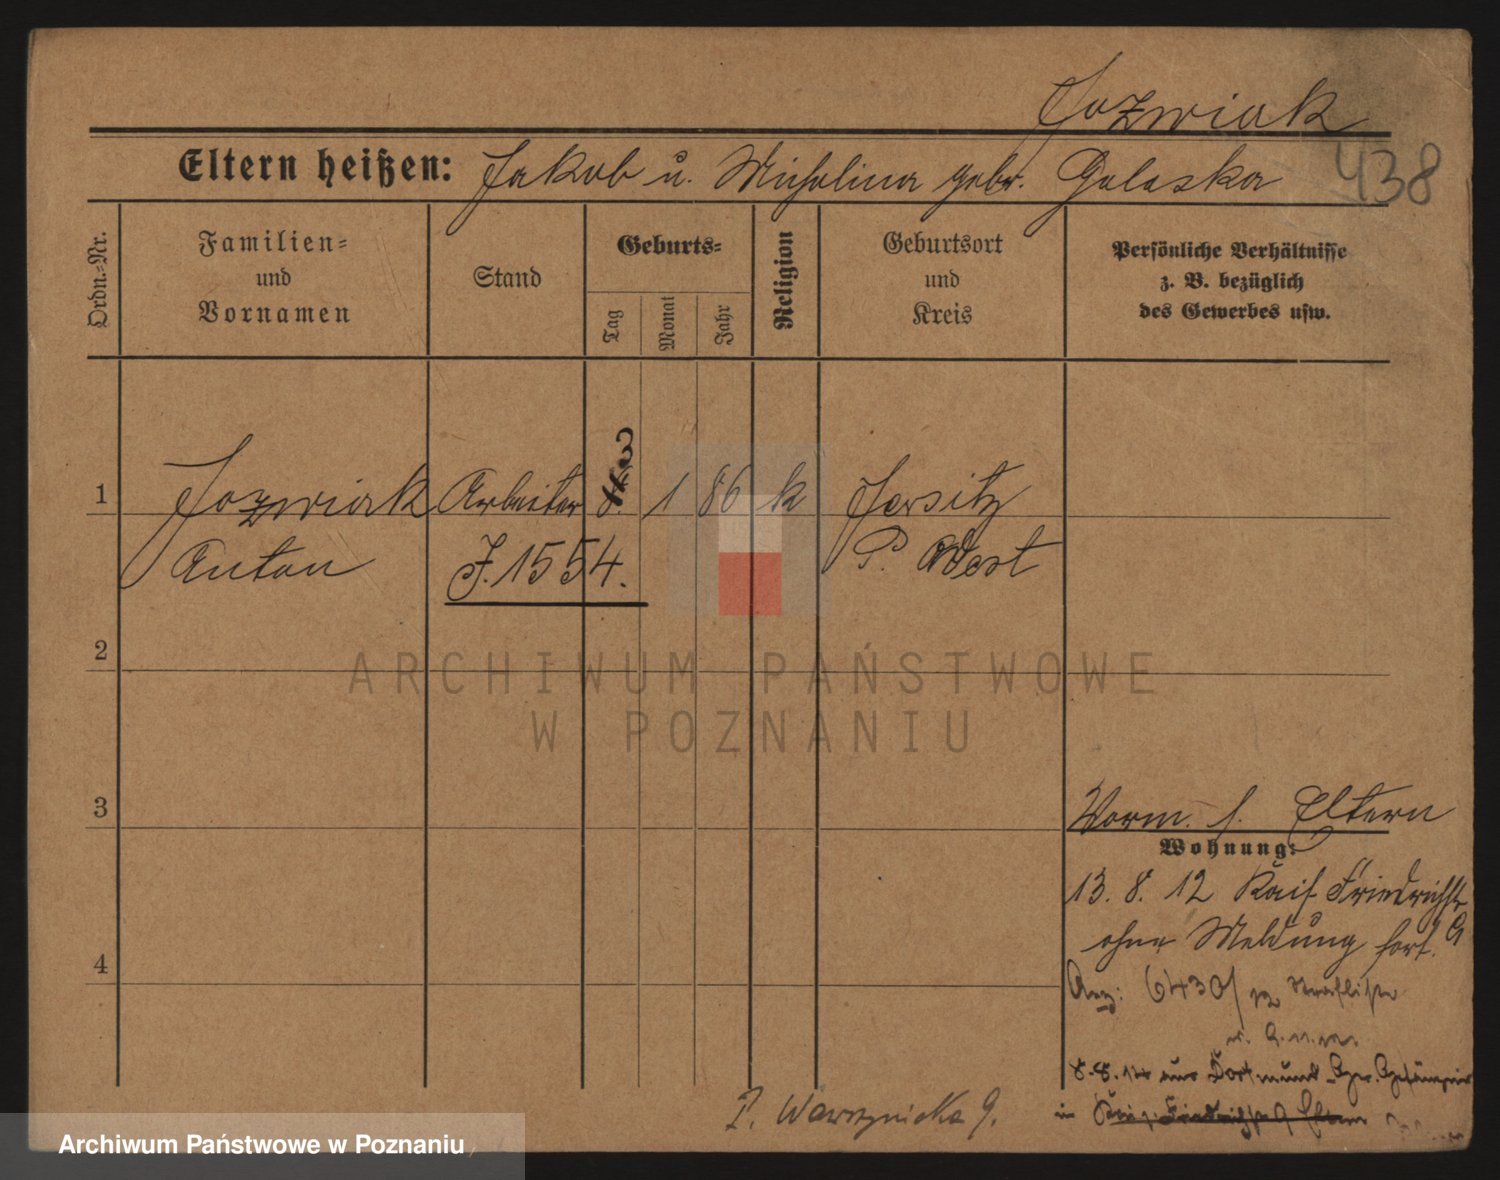 Jozwiak
438
Eltern heißen: Jakob u. Michalina gebr. Galaska
Ordn.=Nr.
Familien=
und
Vornamen
Stand
Geburts=
Tag
Monat
Jahr
Religion
Geburtsort
und
Kreis
Persönliche Verhältnisse
z. B. bezüglich
des Gewerbes usw.
1
Jozwiak Arbeiter 8. 1 86 k Jersitz
Anton J. 1554. P. West
2
3
Vorm. s. Eltern
Wohnung:
13. 8. 12 Kais. Friedrichstr 9
ohne Meldung fort.
4
6430/12
8.8.14 aus Dortmund
in
P. Wawrzyniaka 9.
ARCHIWUM PAŃSTWOWE
W POZNANIU
Archiwum Państwowe w Poznaniu